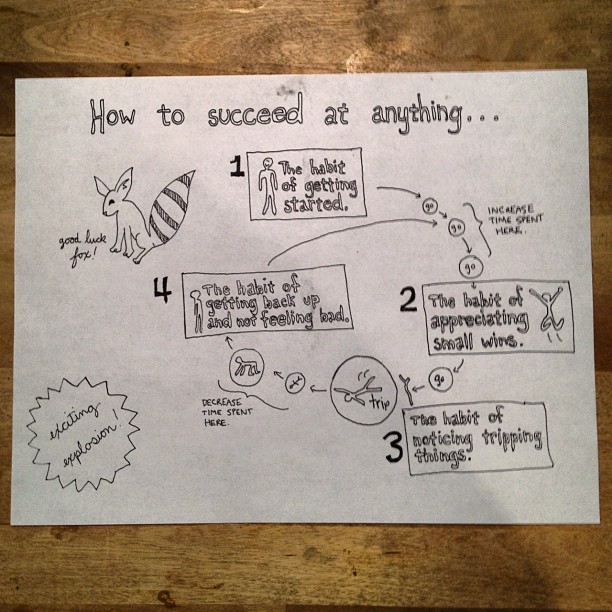 How to succeed at anything...
1
The habit
of getting
started.
good luck
fox!
go
go
go
INCREASE
TIME SPENT
HERE.
2
The habit of
appreciating
small wins.
go
3
The habit of
noticing tripping
things.
trip
DECREASE
TIME SPENT
HERE.
4
The habit of
getting back up
and not feeling bad.
exciting
explosion!